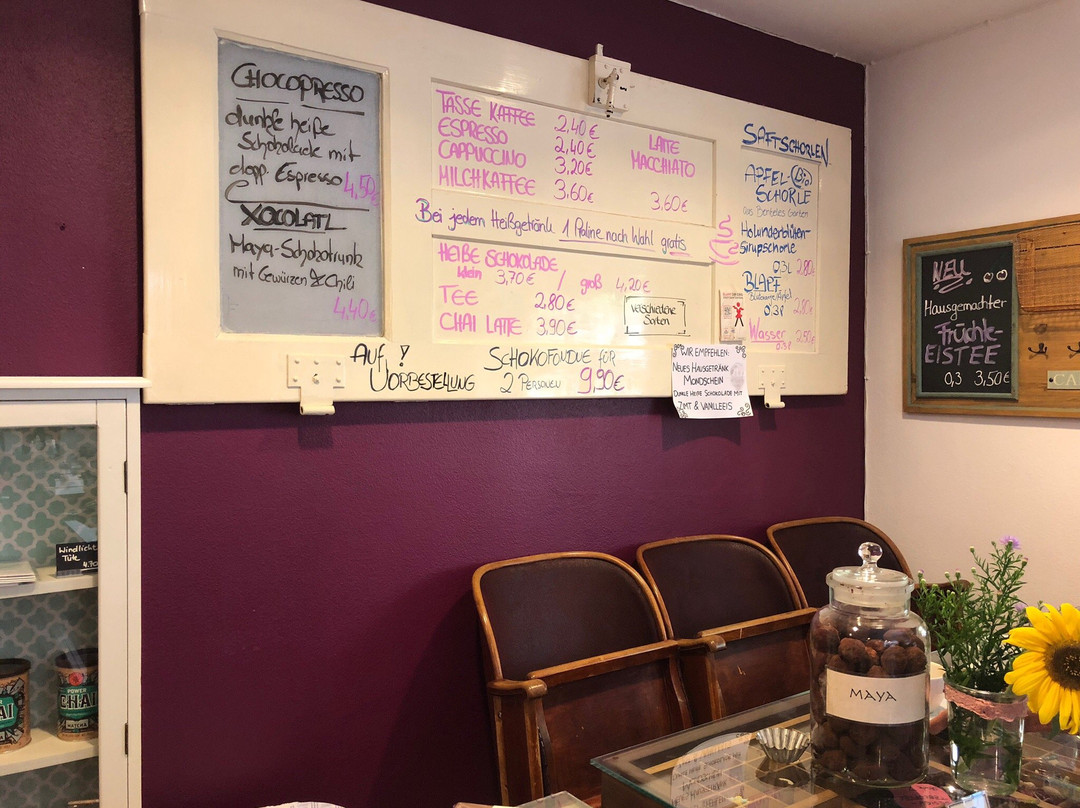 CHOCOPRESSO
dunkle heiße
Schokolade mit
dopp. Espresso 4,50
XOCOLATL
Maya-Schokotrunk
mit Gewürzen & Chili
4,40€
TASSE KAFFEE 2,40€
ESPRESSO 2,40€
CAPPUCCINO 3,20€
MILCHKAFFEE 3,60€
LATTE
MACCHIATO
3,60€
Bei jedem Heißgetränk 1 Praline nach Wahl gratis
HEIßE SCHOKOLADE
klein 3,70€ / groß 4,20€
TEE 2,80€
CHAI LATTE 3,90€
Verschiedene
Sorten
AUF !
VORBESTELLUNG
SCHOKOFONDUE FÜR
2 PERSONEN 9,90€
SAFTSCHORLEN
APFEL- Bio
SCHORLE
aus Benteles Garten
Holunderblüten-
sirupschorle
0,3L 2,80€
BLAPF
0,3l 2,80€
Wasser 2,50€
0,3l
WIR EMPFEHLEN:
NEUES HAUSGETRÄNK
MONDSCHEIN
DUNKLE HEIßE SCHOKOLADE MIT
ZIMT & VANILLEEIS
NEU
Hausgemachter
Früchte-
EISTEE
0,3 3,50€
CA
Windlicht
Tüte 4,70
POWER
CHAI
MATCHA
AI
MAYA